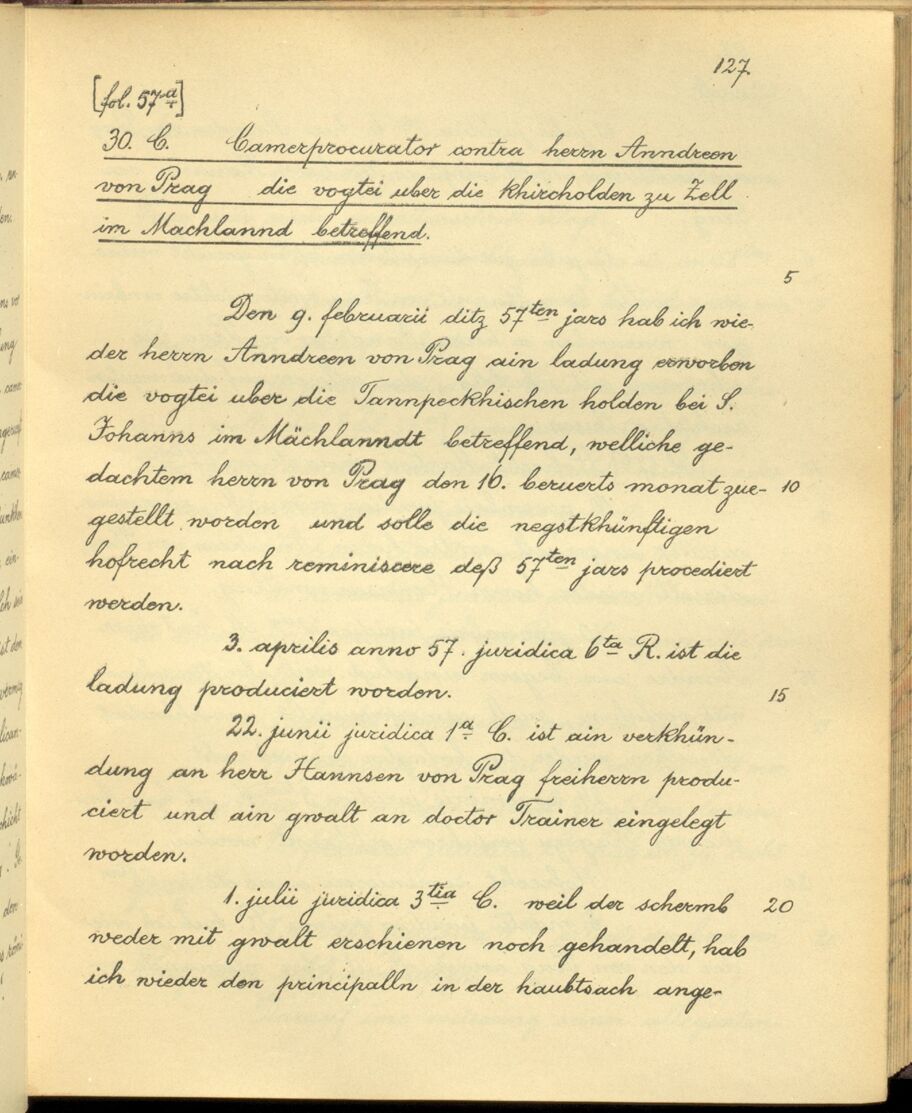 127
[fol. 57a]
30. C. Camerprocurator contra herrn Anndreen
von Prag die vogtei uber die khircholden zu Zell
im Machlannd betreffend.
5
Den 9. februarii ditz 57ten jars hab ich wie-
der herrn Anndreen von Prag ain ladung erworben
die vogtei uber die Tannpeckhischen holden bei S.
Johanns im Mächlanndt betreffend, welliche ge-
dachtem herrn von Prag den 16. beruerts monat zue- 10
gestellt worden und solle die negstkhünftigen
hofrecht nach reminiscere deß 57ten jars procediert
werden.
3. aprilis anno 57. juridica 6ta R. ist die
ladung produciert worden. 15
22. junii juridica 1a C. ist ain verkhün-
dung an herr Hannsen von Prag freiherrn produ-
ciert und ain gwalt an doctor Trainer eingelegt
worden.
1. julii juridica 3tia C. weil der schermb 20
weder mit gwalt erschienen noch gehandelt, hab
ich wieder den principalln in der haubtsach ange-